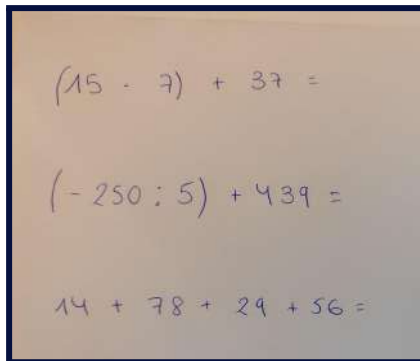 (15 · 7) + 37 =
(- 250 : 5) + 439 =
14 + 78 + 29 + 56 =